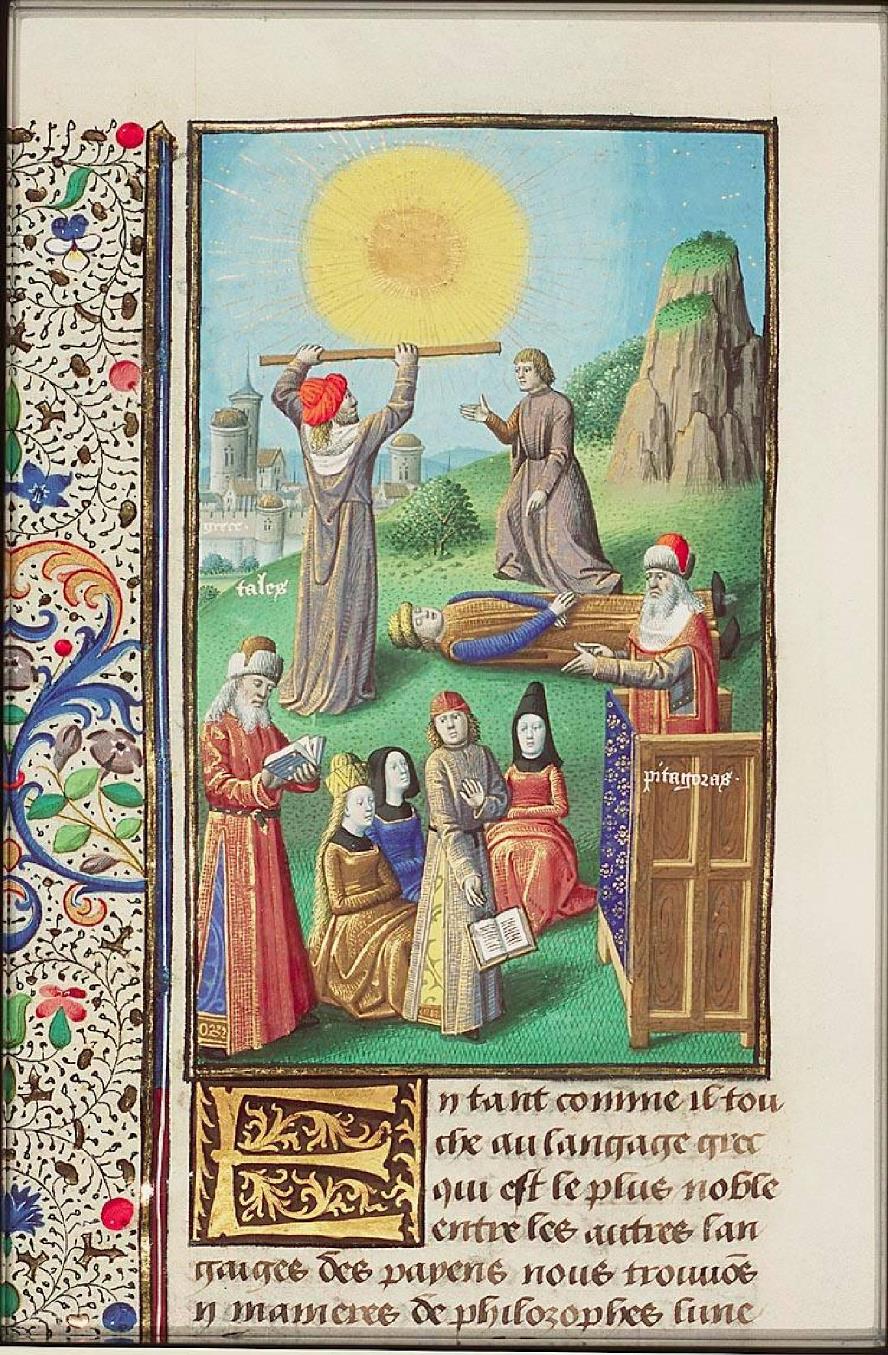 grece.
tales
pitagoras.
En tant comme il tou
che au langage grec
qui est le plus noble
entre les autres lan
gaiges des payens nous trouuōs
ii manieres de philozophes lune